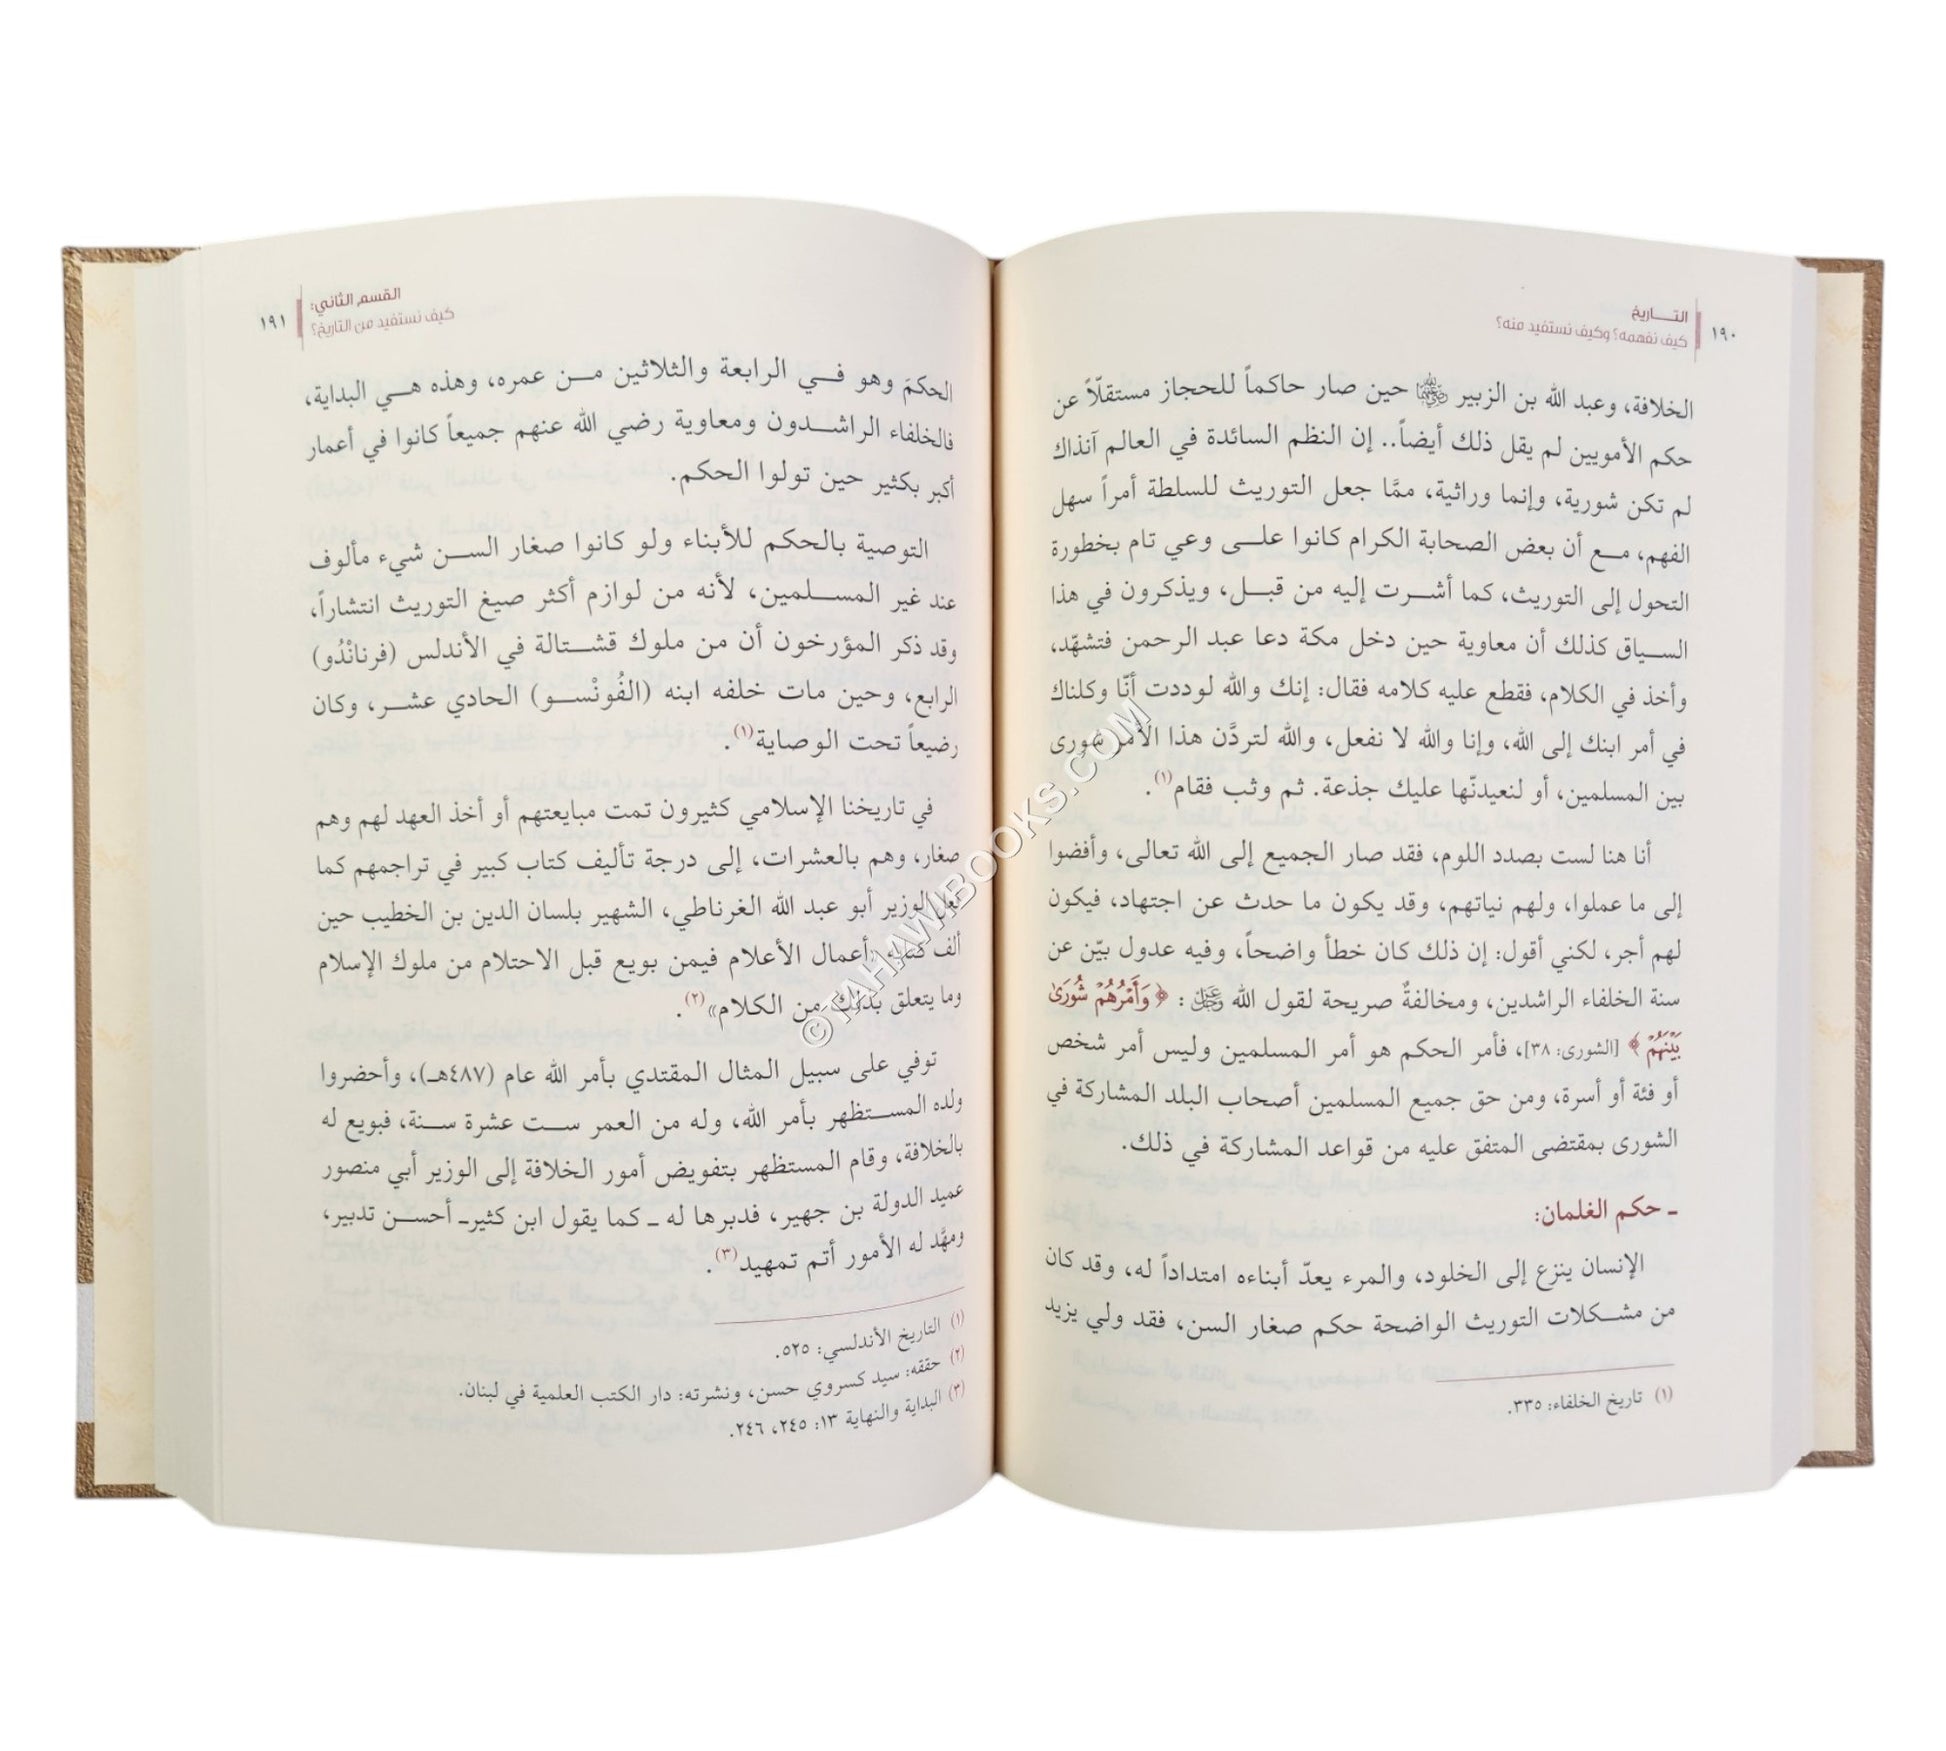 ١٩٠
التـــاريخ
كيف نفهمه؟ وكيف نستفيد منه؟
الخلافة، وعبد الله بن الزبير رضي الله عنهما حين صار حاكماً للحجاز مستقلّاً عن
حكم الأمويين لم يقل ذلك أيضاً.. إن النظم السائدة في العالم آنذاك
لم تكن شورية، وإنما وراثية، ممَّا جعل التوريث للسلطة أمراً سهل
الفهم، مـــع أن بعض الصحابة الكرام كانوا علـــى وعي تام بخطورة
التحول إلى التوريث، كما أشـــرت إليه من قبـــل، ويذكرون في هذا
الســـياق كذلك أن معاوية حين دخل مكة دعا عبد الرحمن فتشهّد،
وأخذ في الكلام، فقطع عليه كلامه فقال: إنك والله لوددت أنّا وكلناك
في أمر ابنك إلى الله، وإنا والله لا نفعل، والله لتردَّن هذا الأمر شورى
بين المسلمين، أو لنعيدنّها عليك جذعة. ثم وثب فقام(١).
أنا هنا لست بصدد اللوم، فقد صار الجميع إلى الله تعالى، وأفضوا
إلى ما عملوا، ولهم نياتهم، وقد يكون ما حدث عن اجتهاد، فيكون
لهم أجر، لكني أقول: إن ذلك كان خطأ واضحاً، وفيه عدول بيّن عن
سنة الخلفاء الراشدين، ومخالفةٌ صريحة لقول الله عز وجل: ﴿ وَأَمْرُهُمْ شُورَىٰ
بَيْنَهُمْ ﴾ [الشورى: ٣٨]، فأمر الحكم هو أمر المسلمين وليس أمر شخص
أو فئة أو أسرة، ومن حق جميع المسلمين أصحاب البلد المشاركة في
الشورى بمقتضى المتفق عليه من قواعد المشاركة في ذلك.
ـ حكم الغلمان:
الإنسان ينزع إلى الخلود، والمرء يعدّ أبناءه امتداداً له، وقد كان
من مشـــكلات التوريث الواضحة حكم صغار السن، فقد ولي يزيد
(١) تاريخ الخلفاء: ٣٣٥.
القسم الثاني:
كيف نستفيد من التاريخ؟
١٩١
الحكمَ وهو فـــي الرابعة والثلاثين مـــن عمره، وهذه هـــي البداية،
فالخلفاء الراشـــدون ومعاوية رضي الله عنهم جميعاً كانوا في أعمار
أكبر بكثير حين تولوا الحكم.
التوصية بالحكم للأبناء ولو كانوا صغار الســـن شيء مألوف
عند غير المســـلمين، لأنه من لوازم أكثر صيغ التوريث انتشاراً،
وقد ذكر المؤرخون أن من ملوك قشـــتالة في الأندلس (فرنانْدُو)
الرابع، وحين مات خلفه ابنه (الفُونْســـو) الحادي عشـــر، وكان
رضيعاً تحت الوصاية(١).
في تاريخنا الإسلامي كثيرون تمت مبايعتهم أو أخذ العهد لهم وهم
صغار، وهم بالعشرات، إلى درجة تأليف كتاب كبير في تراجمهم كما
فعل الوزير أبو عبد الله الغرناطي، الشهير بلسان الدين بن الخطيب حين
ألف كتابه «أعمال الأعلام فيمن بويع قبل الاحتلام من ملوك الإسلام
وما يتعلق بذلك من الكلام»(٢).
توفي على سبيل المثال المقتدي بأمر الله عام (٤٨٧هـ)، وأحضروا
ولده المســـتظهر بأمر الله، وله من العمر ســـت عشرة سنة، فبويع له
بالخلافة، وقام المستظهر بتفويض أمور الخلافة إلى الوزير أبي منصور
عميد الدولة بن جهير، فدبرها له ـ كما يقول ابن كثيرـ أحســـن تدبير،
ومهَّد له الأمور أتم تمهيد(٣).
(١) التاريخ الأندلسي: ٥٢٥.
(٢) حققه: سيد كسروي حسن، ونشرته: دار الكتب العلمية في لبنان.
(٣) البداية والنهاية ١٣: ٢٤٥، ٢٤٦.
©TAHAWIBOOKS.COM